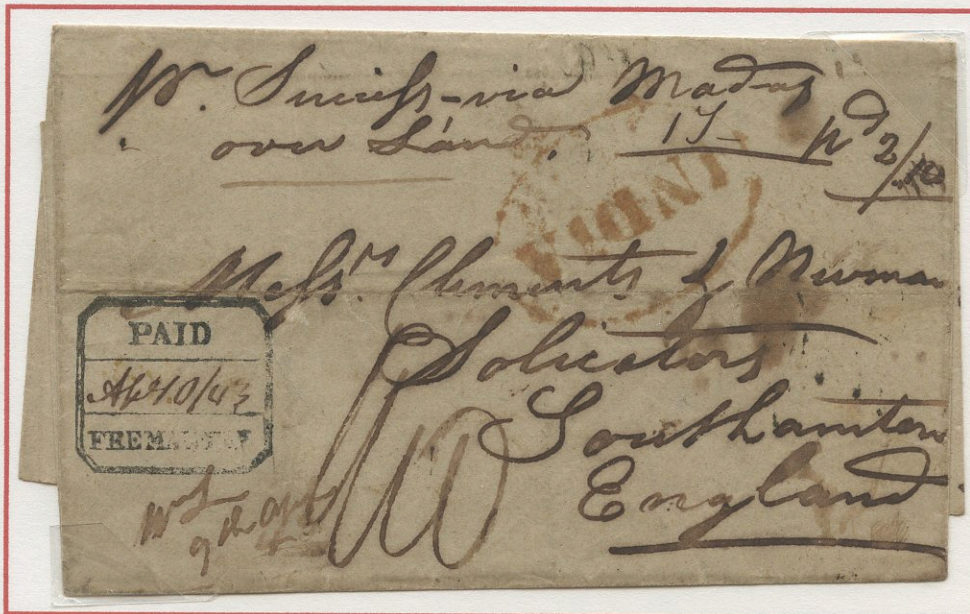 pr. Success - via Madras
over Land. 17 pd 2/10
INDIA
Messrs. Clements & Newman
Solicitors
Southampton
England
PAID
Apl 10/43
FREMANTLE
9th